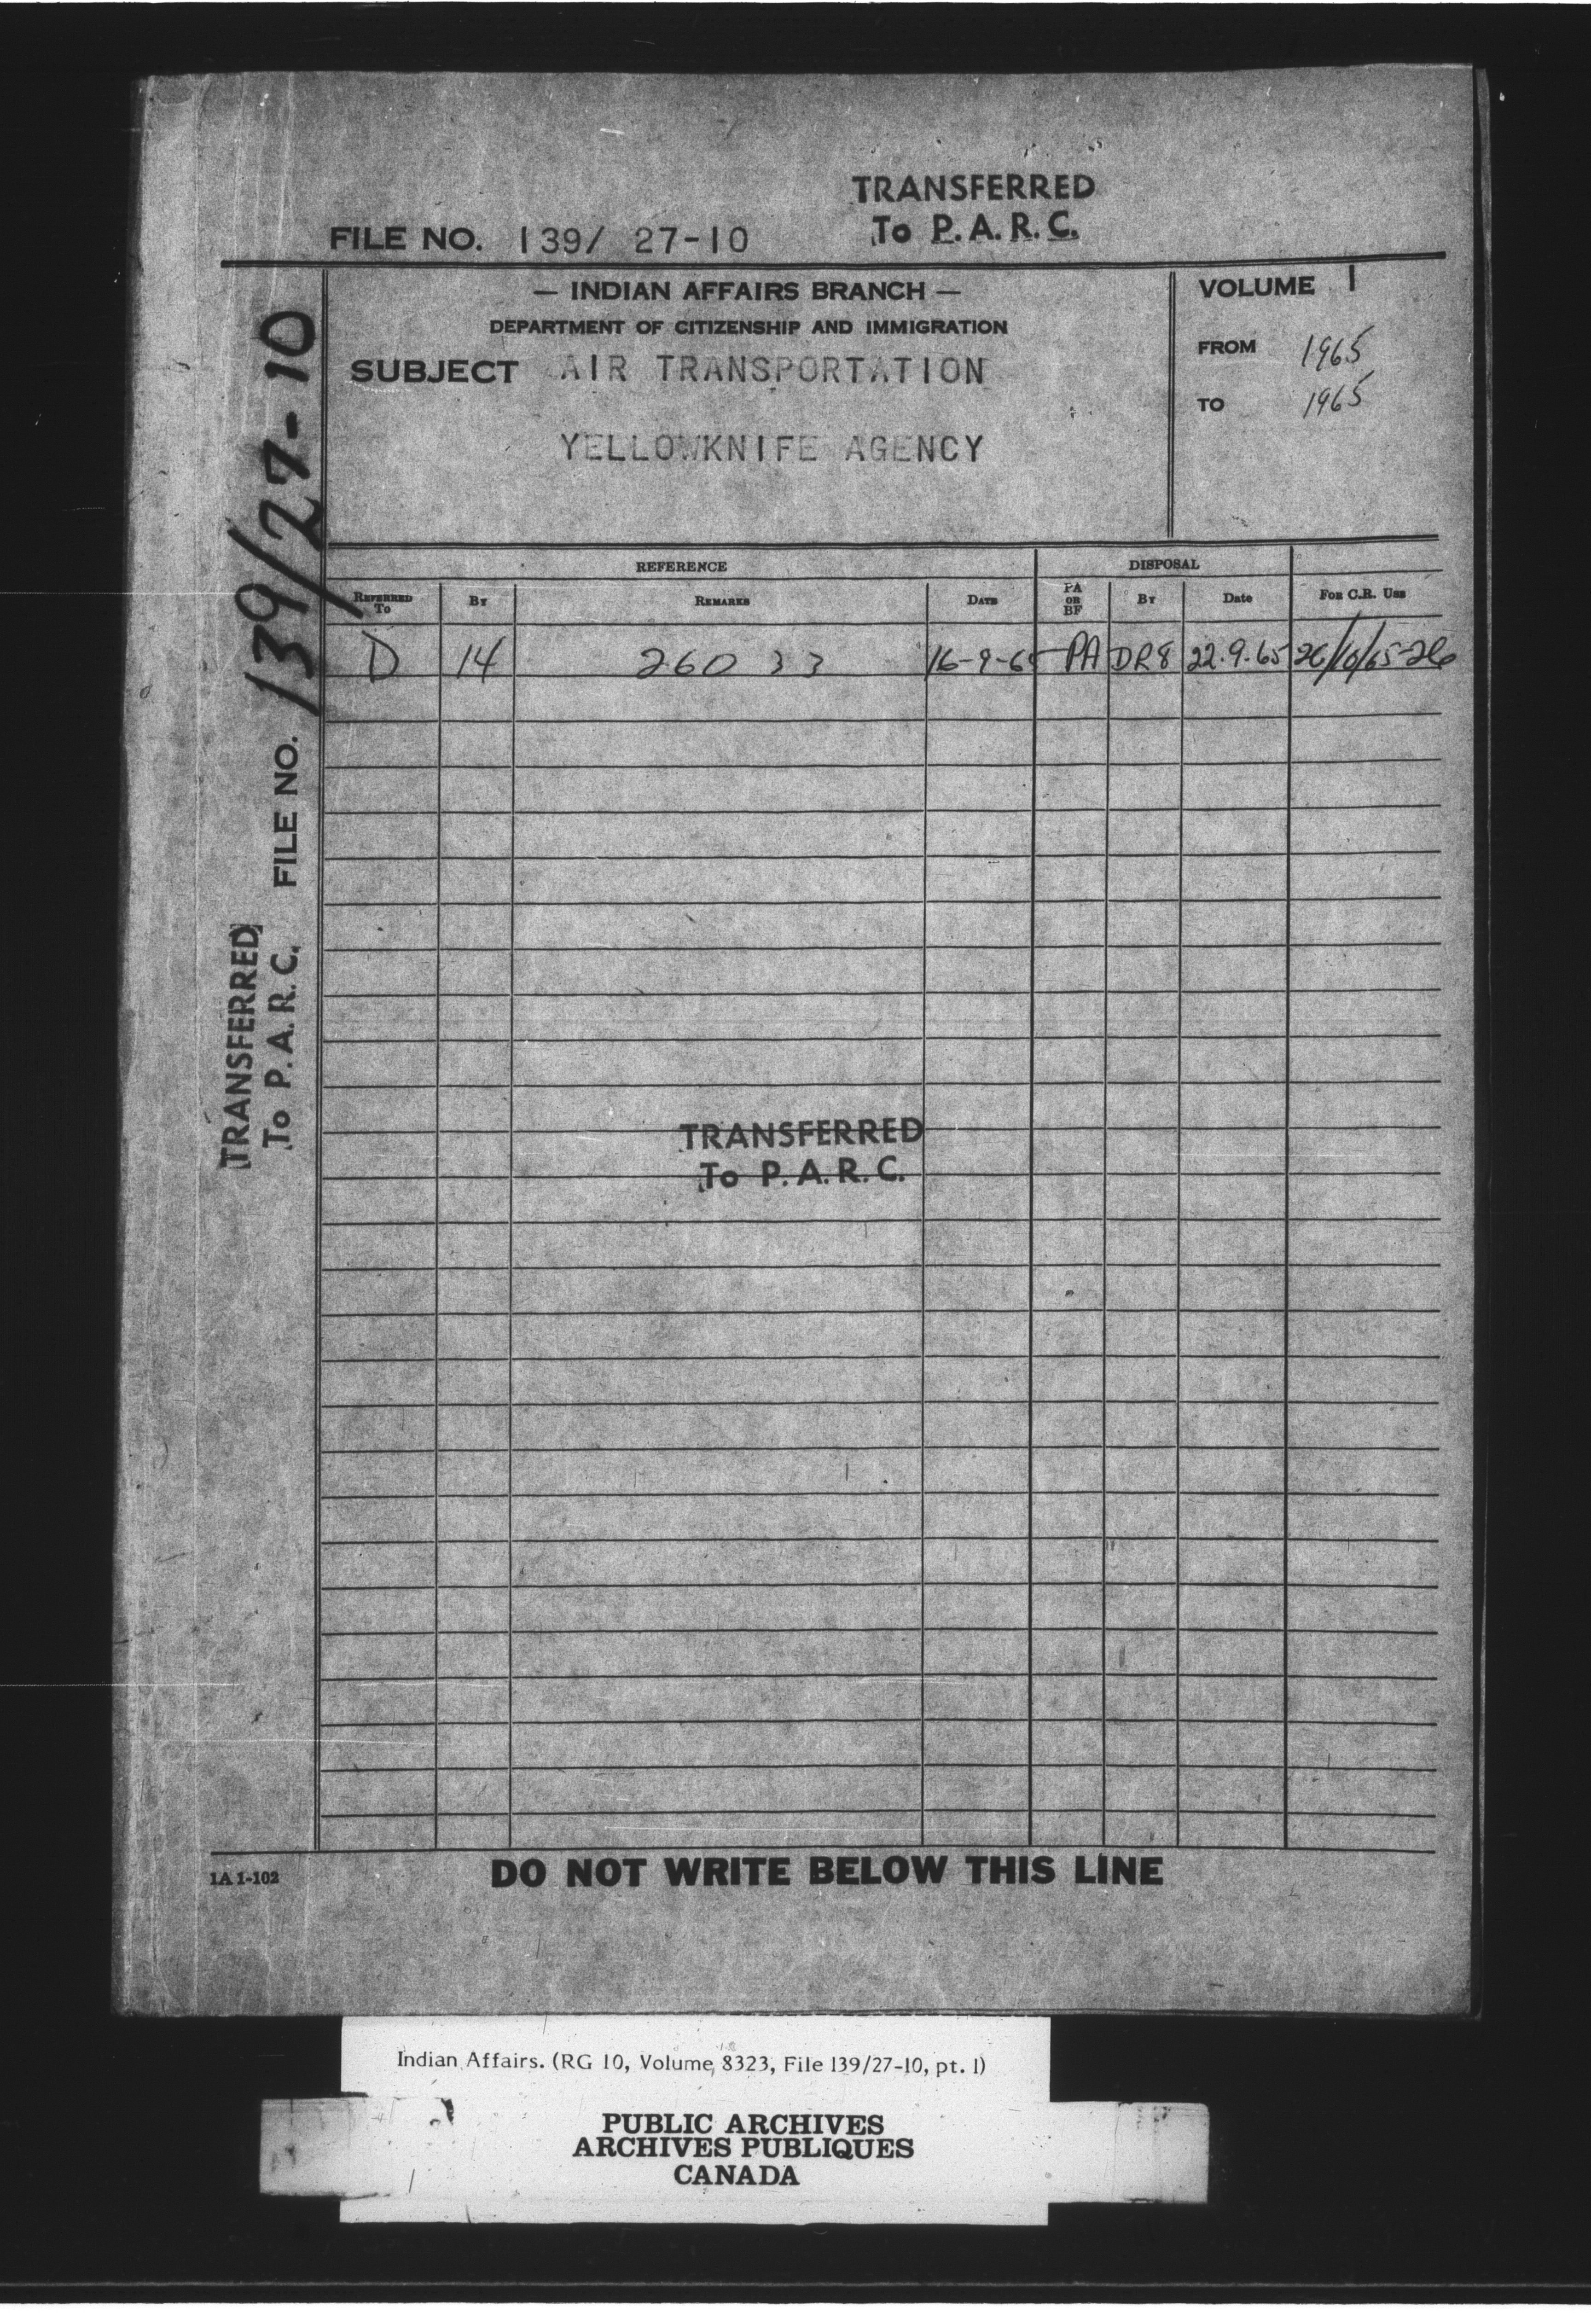 TRANSFERRED
To P.A.R.C.
FILE NO. 139/ 27-10
— INDIAN AFFAIRS BRANCH —
DEPARTMENT OF CITIZENSHIP AND IMMIGRATION
SUBJECT AIR TRANSPORTATION
YELLOWKNIFE AGENCY
VOLUME 1
FROM 1965
TO 1965
FILE NO. 139/27-10
TRANSFERRED
To P.A.R.C.
REFERENCE DISPOSAL
REFERRED TO BY REMARKS DATE PA OR BF BY Date FOR C.R. USE
D 14 260 33 16-9-65 PA DR8 22.9.65 26/10/65-26
TRANSFERRED
To P.A.R.C.
1A 1-102
DO NOT WRITE BELOW THIS LINE
Indian Affairs. (RG 10, Volume 8323, File 139/27-10, pt. 1)
PUBLIC ARCHIVES
ARCHIVES PUBLIQUES
CANADA